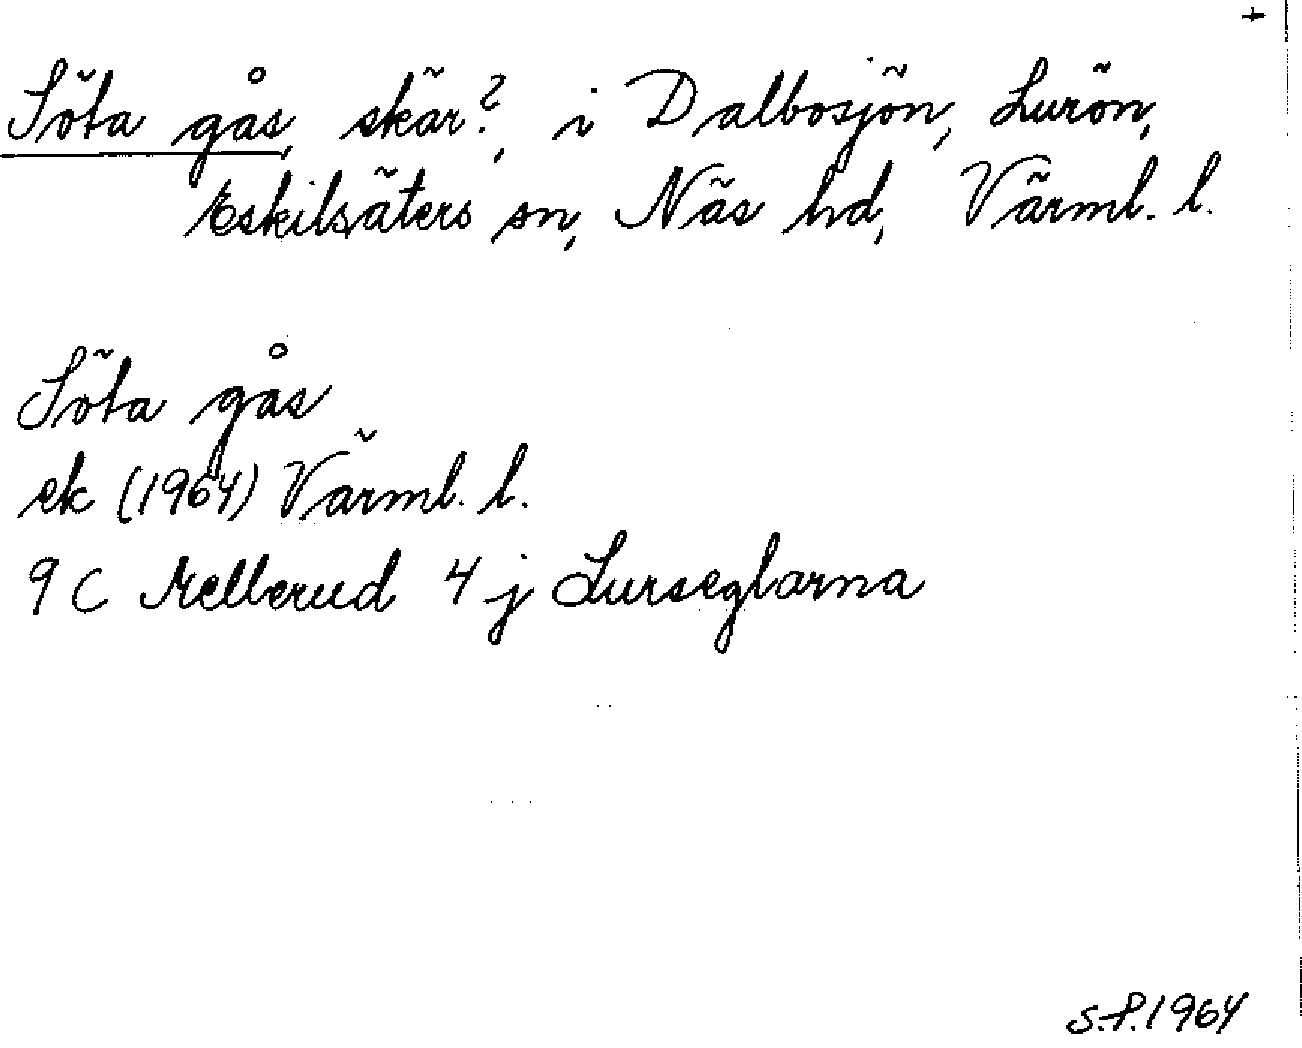 +
Söta gås, skär?, i Dalbosjön, Lurön,
Eskilsäters sn, Näs hd, Värml. l.
Söta gås
ek (1964) Värml. l.
9 C Mellerud 4 j Lurseglarna
S.P. 1964